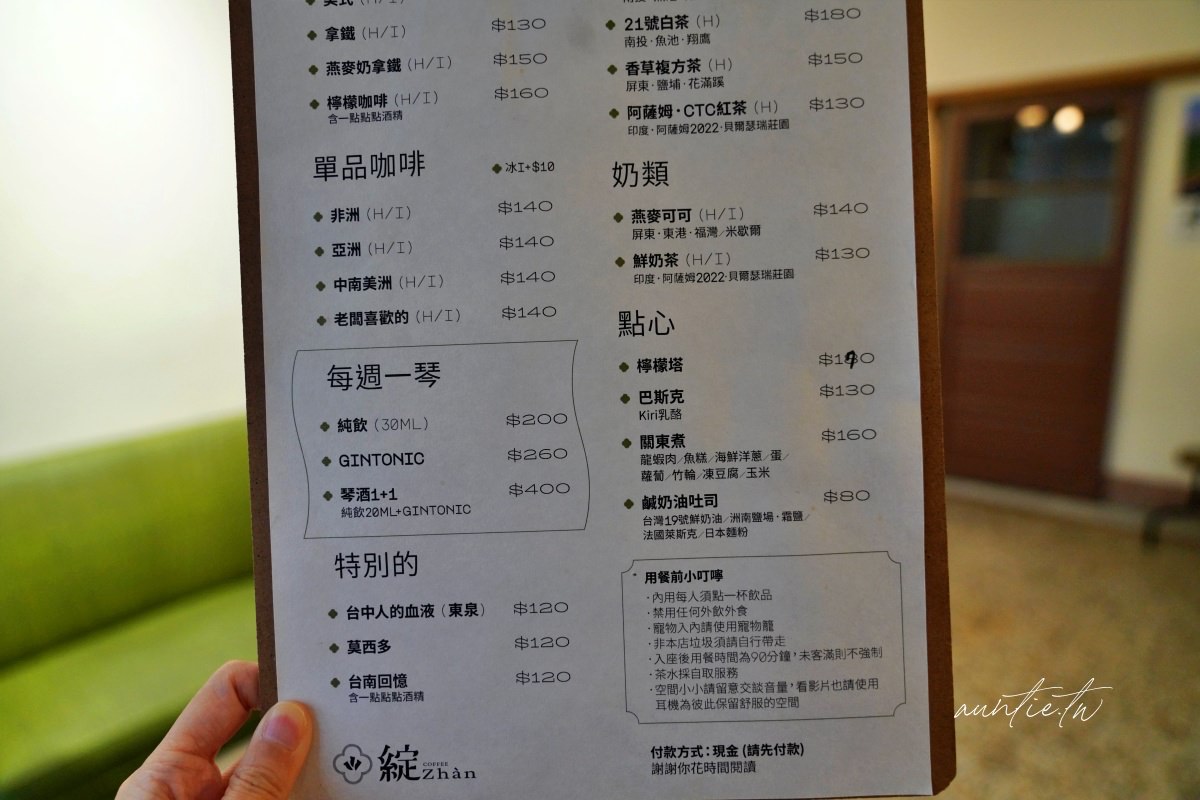 美式 (H/I)
拿鐵 (H/I) $130
燕麥奶拿鐵 (H/I) $150
檸檬咖啡 (H/I) $160
含一點點點酒精
單品咖啡 冰I+$10
非洲 (H/I) $140
亞洲 (H/I) $140
中南美洲 (H/I) $140
老闆喜歡的 (H/I) $140
每週一琴
純飲 (30ML) $200
GINTONIC $260
琴酒1+1 $400
純飲20ML+GINTONIC
特別的
台中人的血液 (東泉) $120
莫西多 $120
台南回憶 $120
含一點點點酒精
綻 COFFEE Zhàn
$180
21號白茶 (H)
南投·魚池·翔鷹
香草複方茶 (H) $150
屏東·鹽埔·花滿蹊
阿薩姆·CTC紅茶 (H) $130
印度·阿薩姆2022·貝爾瑟瑞莊園
奶類
燕麥可可 (H/I) $140
屏東·東港·福灣/米歇爾
鮮奶茶 (H/I) $130
印度·阿薩姆2022·貝爾瑟瑞莊園
點心
檸檬塔 $190
巴斯克 $130
Kiri乳酪
關東煮 $160
龍蝦肉/魚糕/海鮮洋蔥/蛋/
蘿蔔/竹輪/凍豆腐/玉米
鹹奶油吐司 $80
台灣19號鮮奶油/洲南鹽場·霜鹽/
法國萊斯克/日本麵粉
用餐前小叮嚀
·內用每人須點一杯飲品
·禁用任何外飲外食
·寵物入內請使用寵物籠
·非本店垃圾須請自行帶走
·入座後用餐時間為90分鐘，未客滿則不強制
·茶水採自取服務
·空間小小請留意交談音量，看影片也請使用
耳機為彼此保留舒服的空間
付款方式：現金 (請先付款)
謝謝你花時間閱讀
auntie.tw